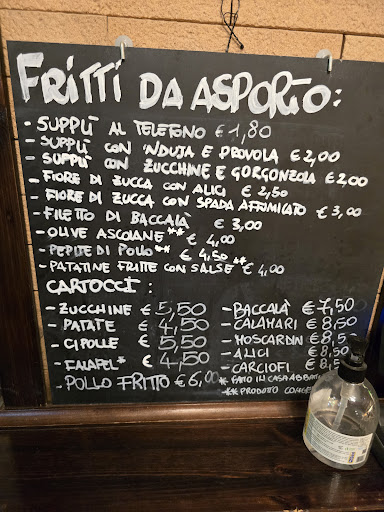 FRITTI DA ASPORTO:
- SUPPLÌ AL TELEFONO € 1,80
- SUPPLÌ CON 'NDUJA E PROVOLA € 2,00
- SUPPLÌ CON ZUCCHINE E GORGONZOLA € 2,00
- FIORE DI ZUCCA CON ALICI € 2,50
- FIORE DI ZUCCA CON SPADA AFFUMICATO € 3,00
- FILETTO DI BACCALÀ € 3,00
- OLIVE ASCOLANE** € 4,00
- PEPITE DI POLLO** € 4,50
- PATATINE FRITTE CON SALSE** € 4,00
CARTOCCI:
- ZUCCHINE € 5,50
- PATATE € 4,50
- CIPOLLE € 5,50
- FALAFEL* € 4,50
- POLLO FRITTO € 6,00
- BACCALÀ € 7,50
- CALAMARI € 8,50
- MOSCARDIN € 8,5
- ALICI € 8,5
- CARCIOFI € 8,5
* FATO IN CASA
** PRODOTTO